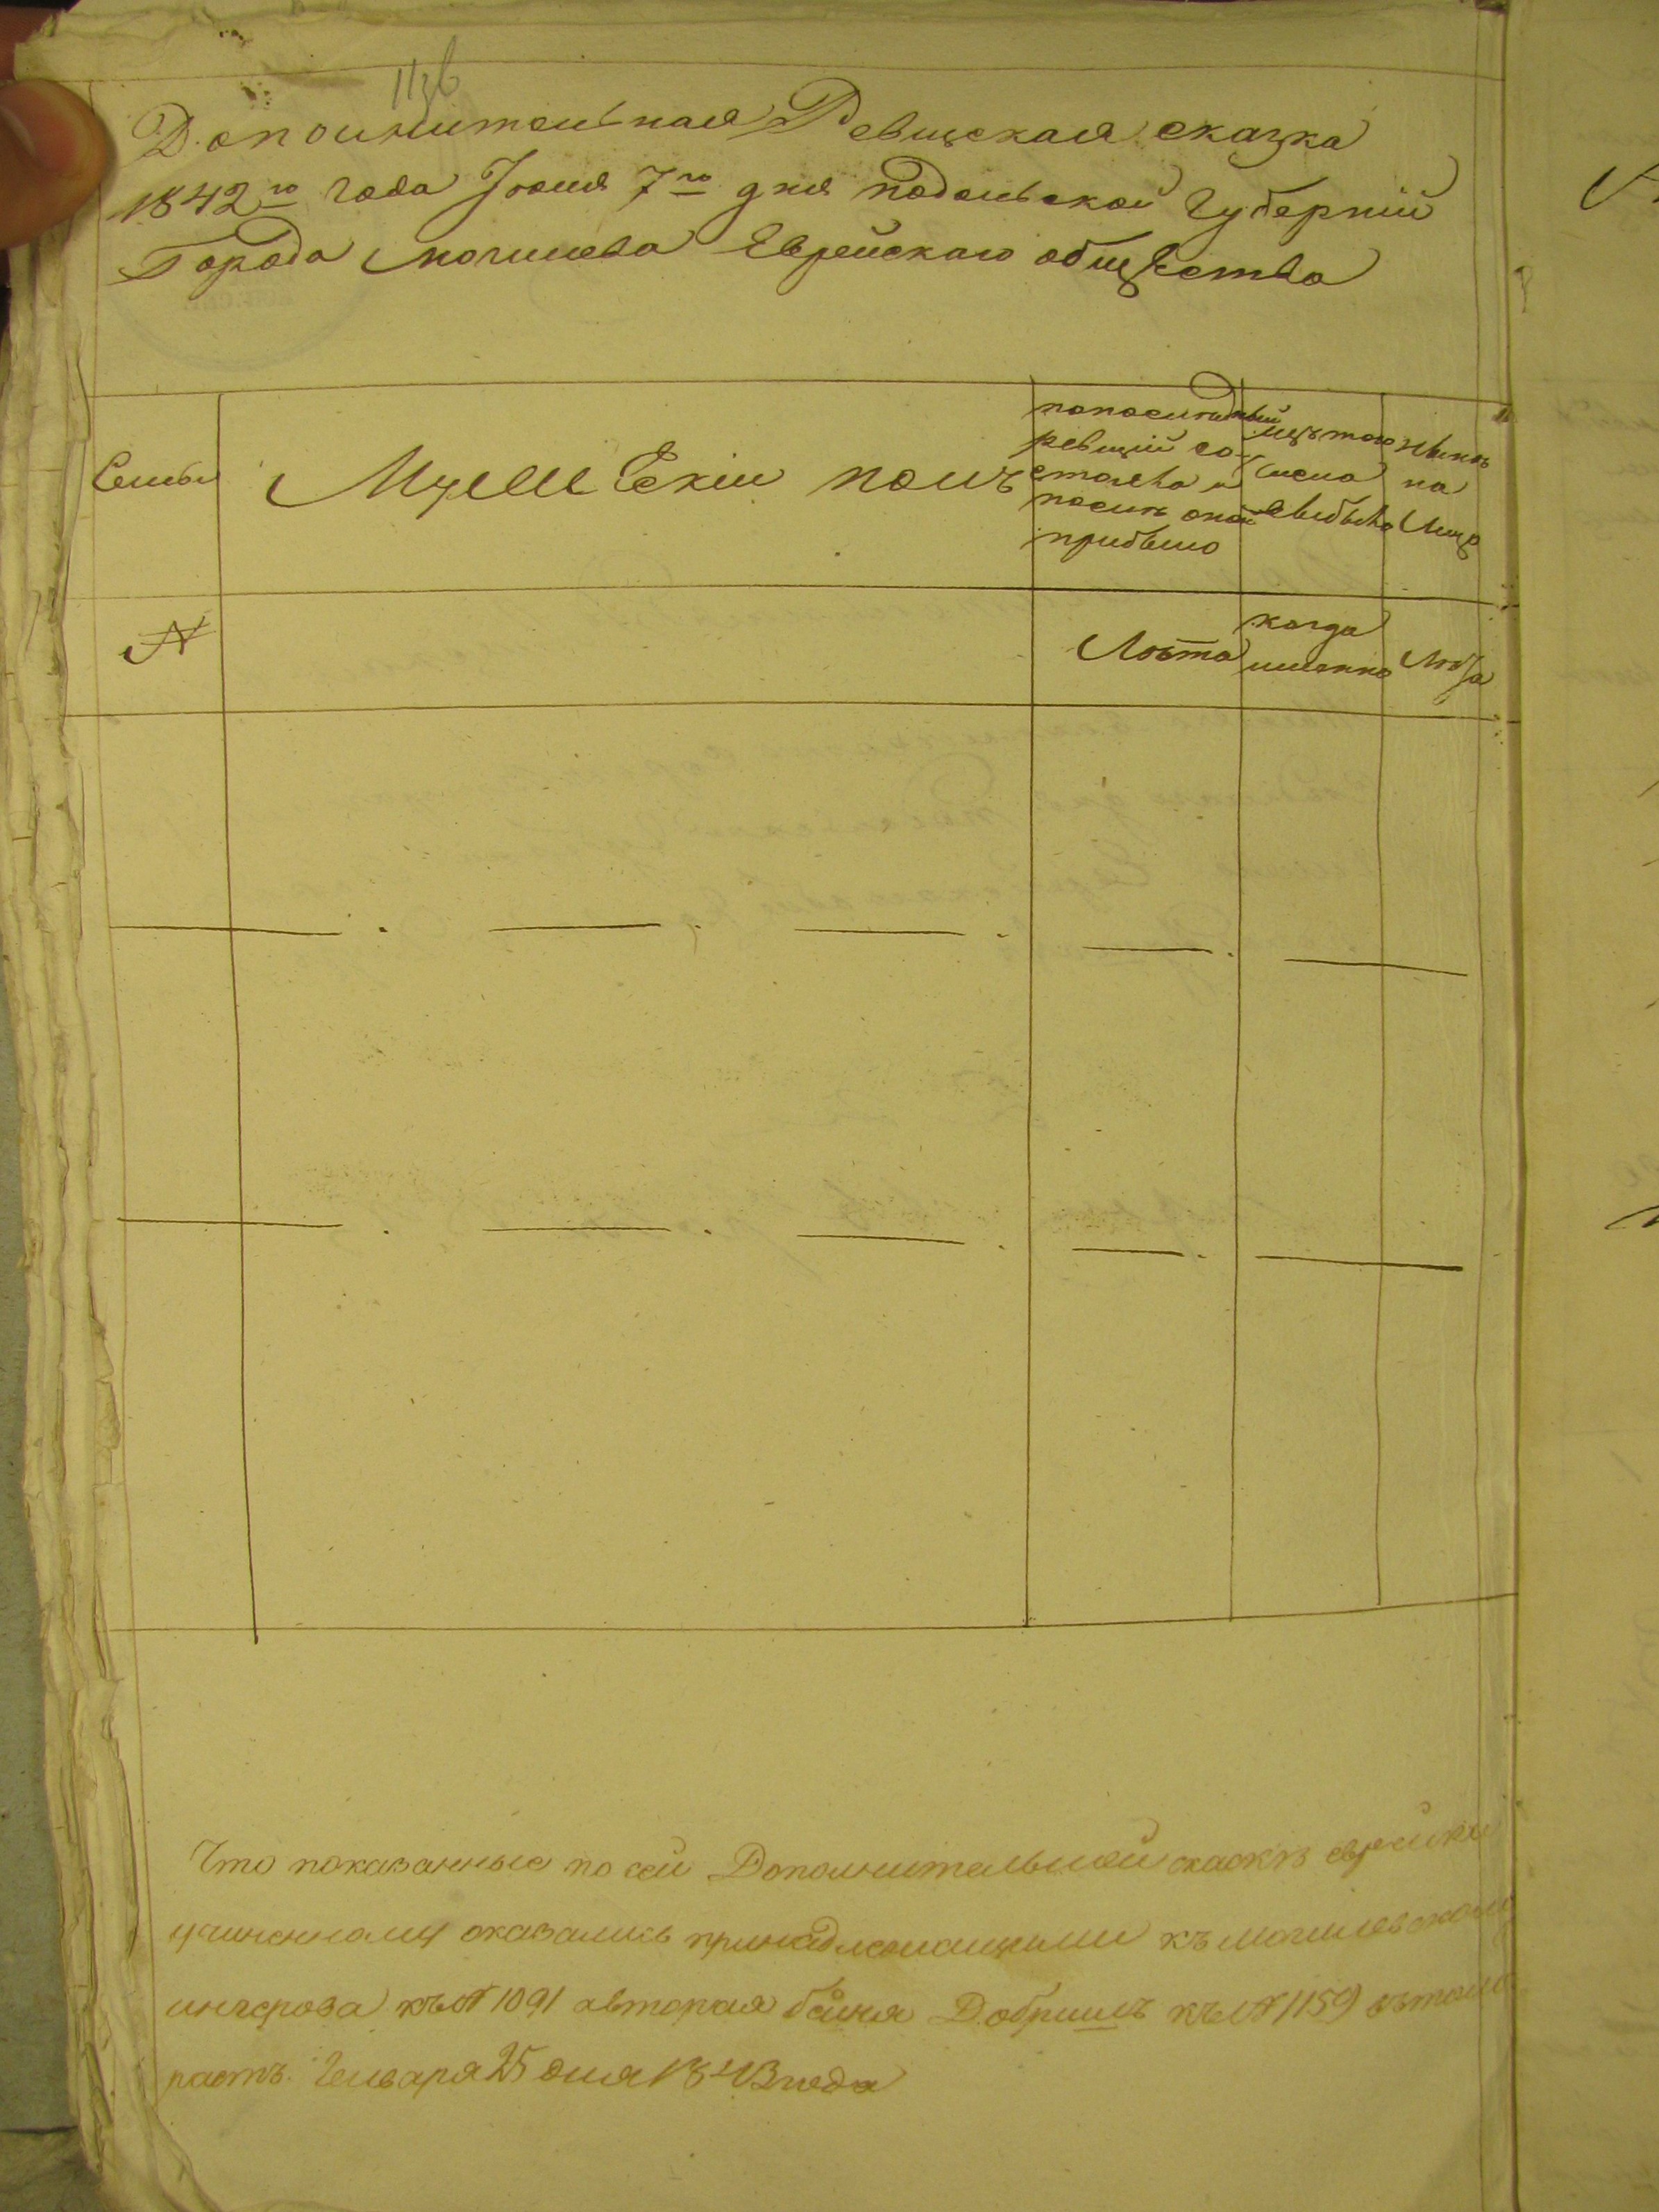 Дополнительная Ревиская сказка
1842го года Июня 7го дня подольской Губернии
Города могилева Еврейскаго общества
Семьи
Мужеский полъ
попоследный
ревизiи со-
стояло и
после оной
прибыло
изъ того
числа
выбыло
Ныне
на
Лицо
№
Лета
когда
именно
Лета
Что показанные по сей Дополнительной сказкъ еврейки
учиненному оказались принадлежащими къ могилевскому
къ № 1091 авторая бейня Добришъ къ № 1159 въ томъ
растъ. Генваря 25 дня 1843 года